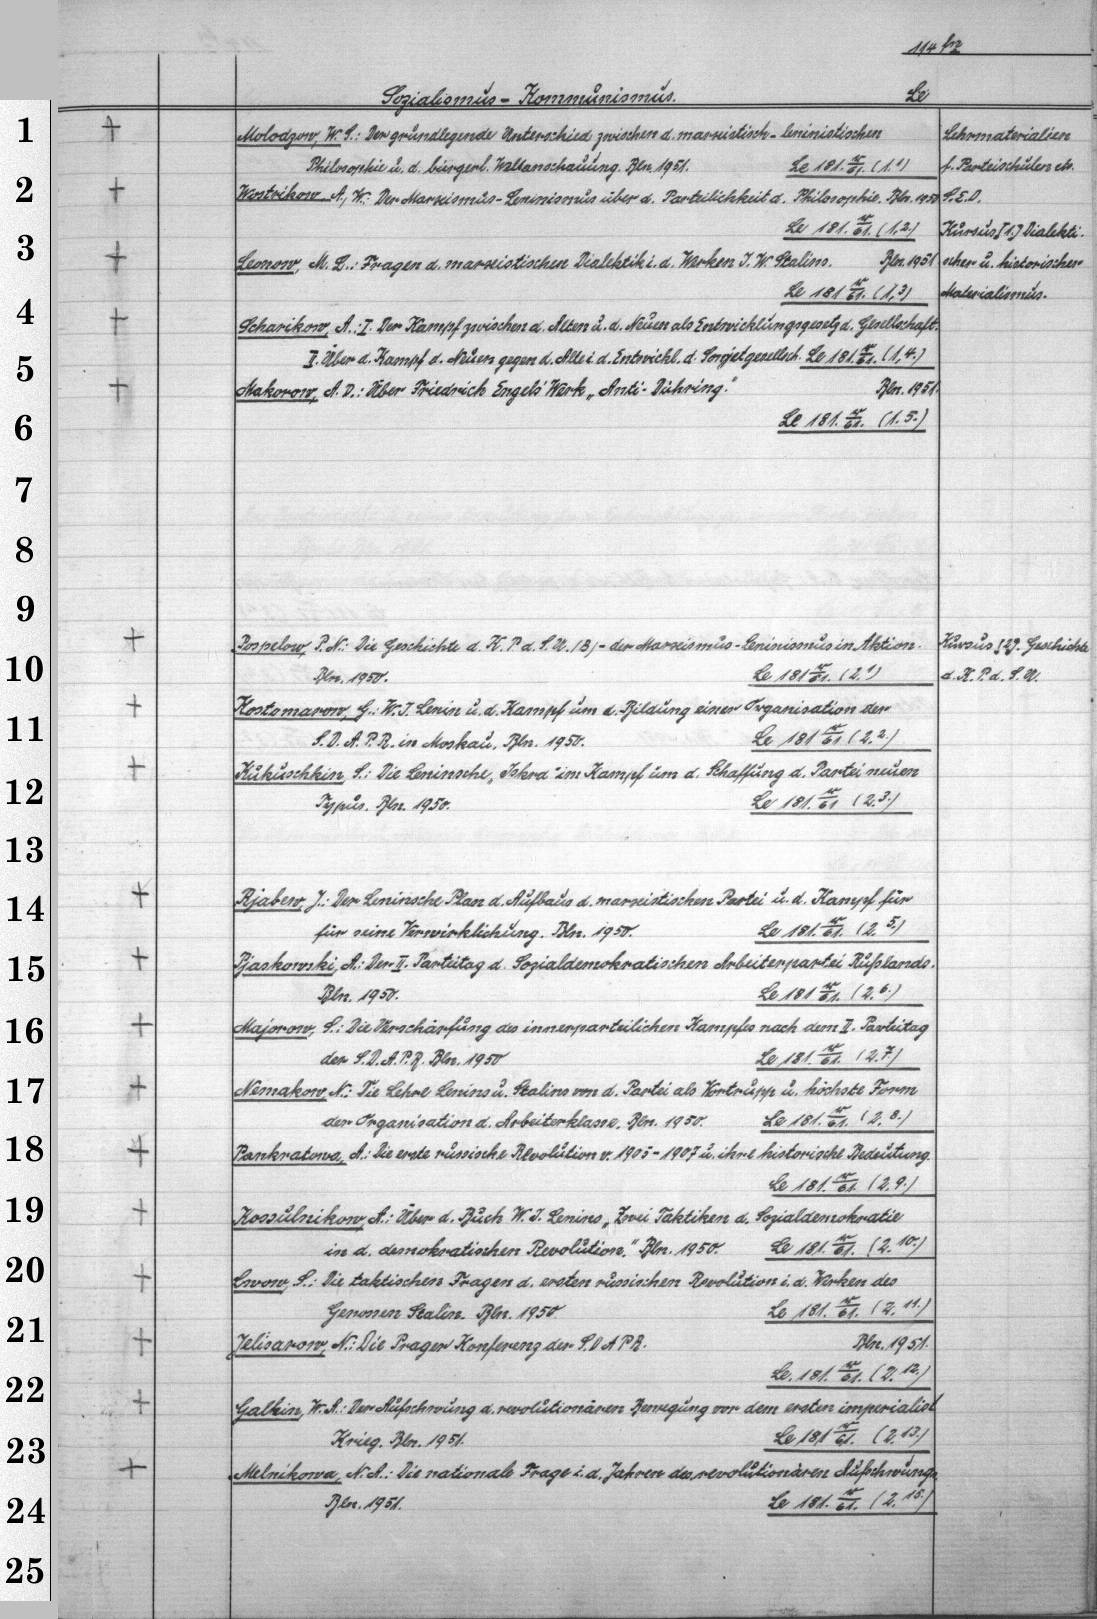 114
Sozialismus - Kommunismus. Le
1 + Molodzow, W. S.: Der grundlegende Unterschied zwischen d. marxistisch-leninistischen Lehrmaterialien
Philosophie u. d. bürgerl. Weltanschauung. Bln. 1951. Le 181. w/61. (1.1) f. Parteischulen etc.
2 + Wostrikow, A. W.: Der Marxismus-Leninismus über d. Parteilichkeit d. Philosophie. Bln. 1950 S.E.D.
Le 181. w/61. (1.2.) Kursus [1.] Dialekti-
3 + Leonow, M. L.: Fragen d. marxistischen Dialektik i. d. Werken J. W. Stalins. Bln. 1951 scher u. historischer
Le 181 w/61. (1,3) Materialismus.
4 + Scharikow, A.: I. Der Kampf zwischen d. Alten u. d. Neuen als Entwicklungsgesetz d. Gesellschaft.
II. Über d. Kampf d. Neuen gegen d. Alte i. d. Entwickl. d. Sowjetgesellsch. Le 181. w/61. (1,4.)
5 + Makorow, A. D.: Über Friedrich Engels' Werk „Anti-Dühring." Bln. 1951.
6 Le 181. w/61. (1.5.)
7
8
9
+ Pospelow, P. N.: Die Geschichte d. K. P. d. S. U. (B) - der Marxismus-Leninismus in Aktion. Kursus [2]. Geschichte
10 Bln. 1950. Le 181 w/61. (2.1) d. K. P. d. S. U.
+ Kostomarow, G.: W. I. Lenin u. d. Kampf um d. Bildung einer Organisation der
11 S. D. A. P. R. in Moskau. Bln. 1950. Le 181 w/61 (2.2.)
+ Kukuschkin, S.: Die Leninsche „Iskra" im Kampf um d. Schaffung d. Partei neuen
12 Typus. Bln. 1950. Le 181. w/61 (2.3.)
13
+ Rjabew, J.: Der Leninsche Plan d. Aufbaus d. marxistischen Partei u. d. Kampf für
14 für seine Verwirklichung. Bln. 1950. Le 181. w/61. (2.5.)
+ Pjaskowski, A.: Der II. Parteitag d. Sozialdemokratischen Arbeiterpartei Rußlands.
15 Bln. 1950. Le 181 w/61. (2.6.)
16 + Majorow, S.: Die Verschärfung des innerparteilichen Kampfes nach dem II. Parteitag
der S. D. A. P. R. Bln. 1950 Le 181. w/61. (2.7.)
17 + Nemakow, N.: Die Lehre Lenins u. Stalins von d. Partei als Vortrupp u. höchste Form
der Organisation d. Arbeiterklasse. Bln. 1950. Le 181. w/61. (2.8.)
18 + Pankratowa, A.: Die erste russische Revolution v. 1905-1907 u. ihre historische Bedeutung.
Le 181. w/61. (2.9.)
19 + Kossulnikow, A.: Über d. Buch W. I. Lenins „Zwei Taktiken d. Sozialdemokratie
in d. demokratischen Revolution." Bln. 1950. Le 181. w/61. (2.10.)
20 + Lwow, S.: Die taktischen Fragen d. ersten russischen Revolution i. d. Werken des
Genonen Stalin. Bln. 1950 Le 181. w/61. (2.11.)
21 + Jelisarow, N.: Die Prager Konferenz der S. D A P R. Bln. 1951.
Le. 181. w/61. (2.12.)
22 + Galkin, W. A.: Der Aufschwung d. revolutionären Bewegung vor dem ersten imperialist
23 Krieg. Bln. 1951. Le 181 w/61. (2.13.)
+ Melnikowa, N. A.: Die nationale Frage i. d. Jahren des revolutionären Aufschwungs
24 Bln. 1951. Le 181. w/61. (2.15.)
25